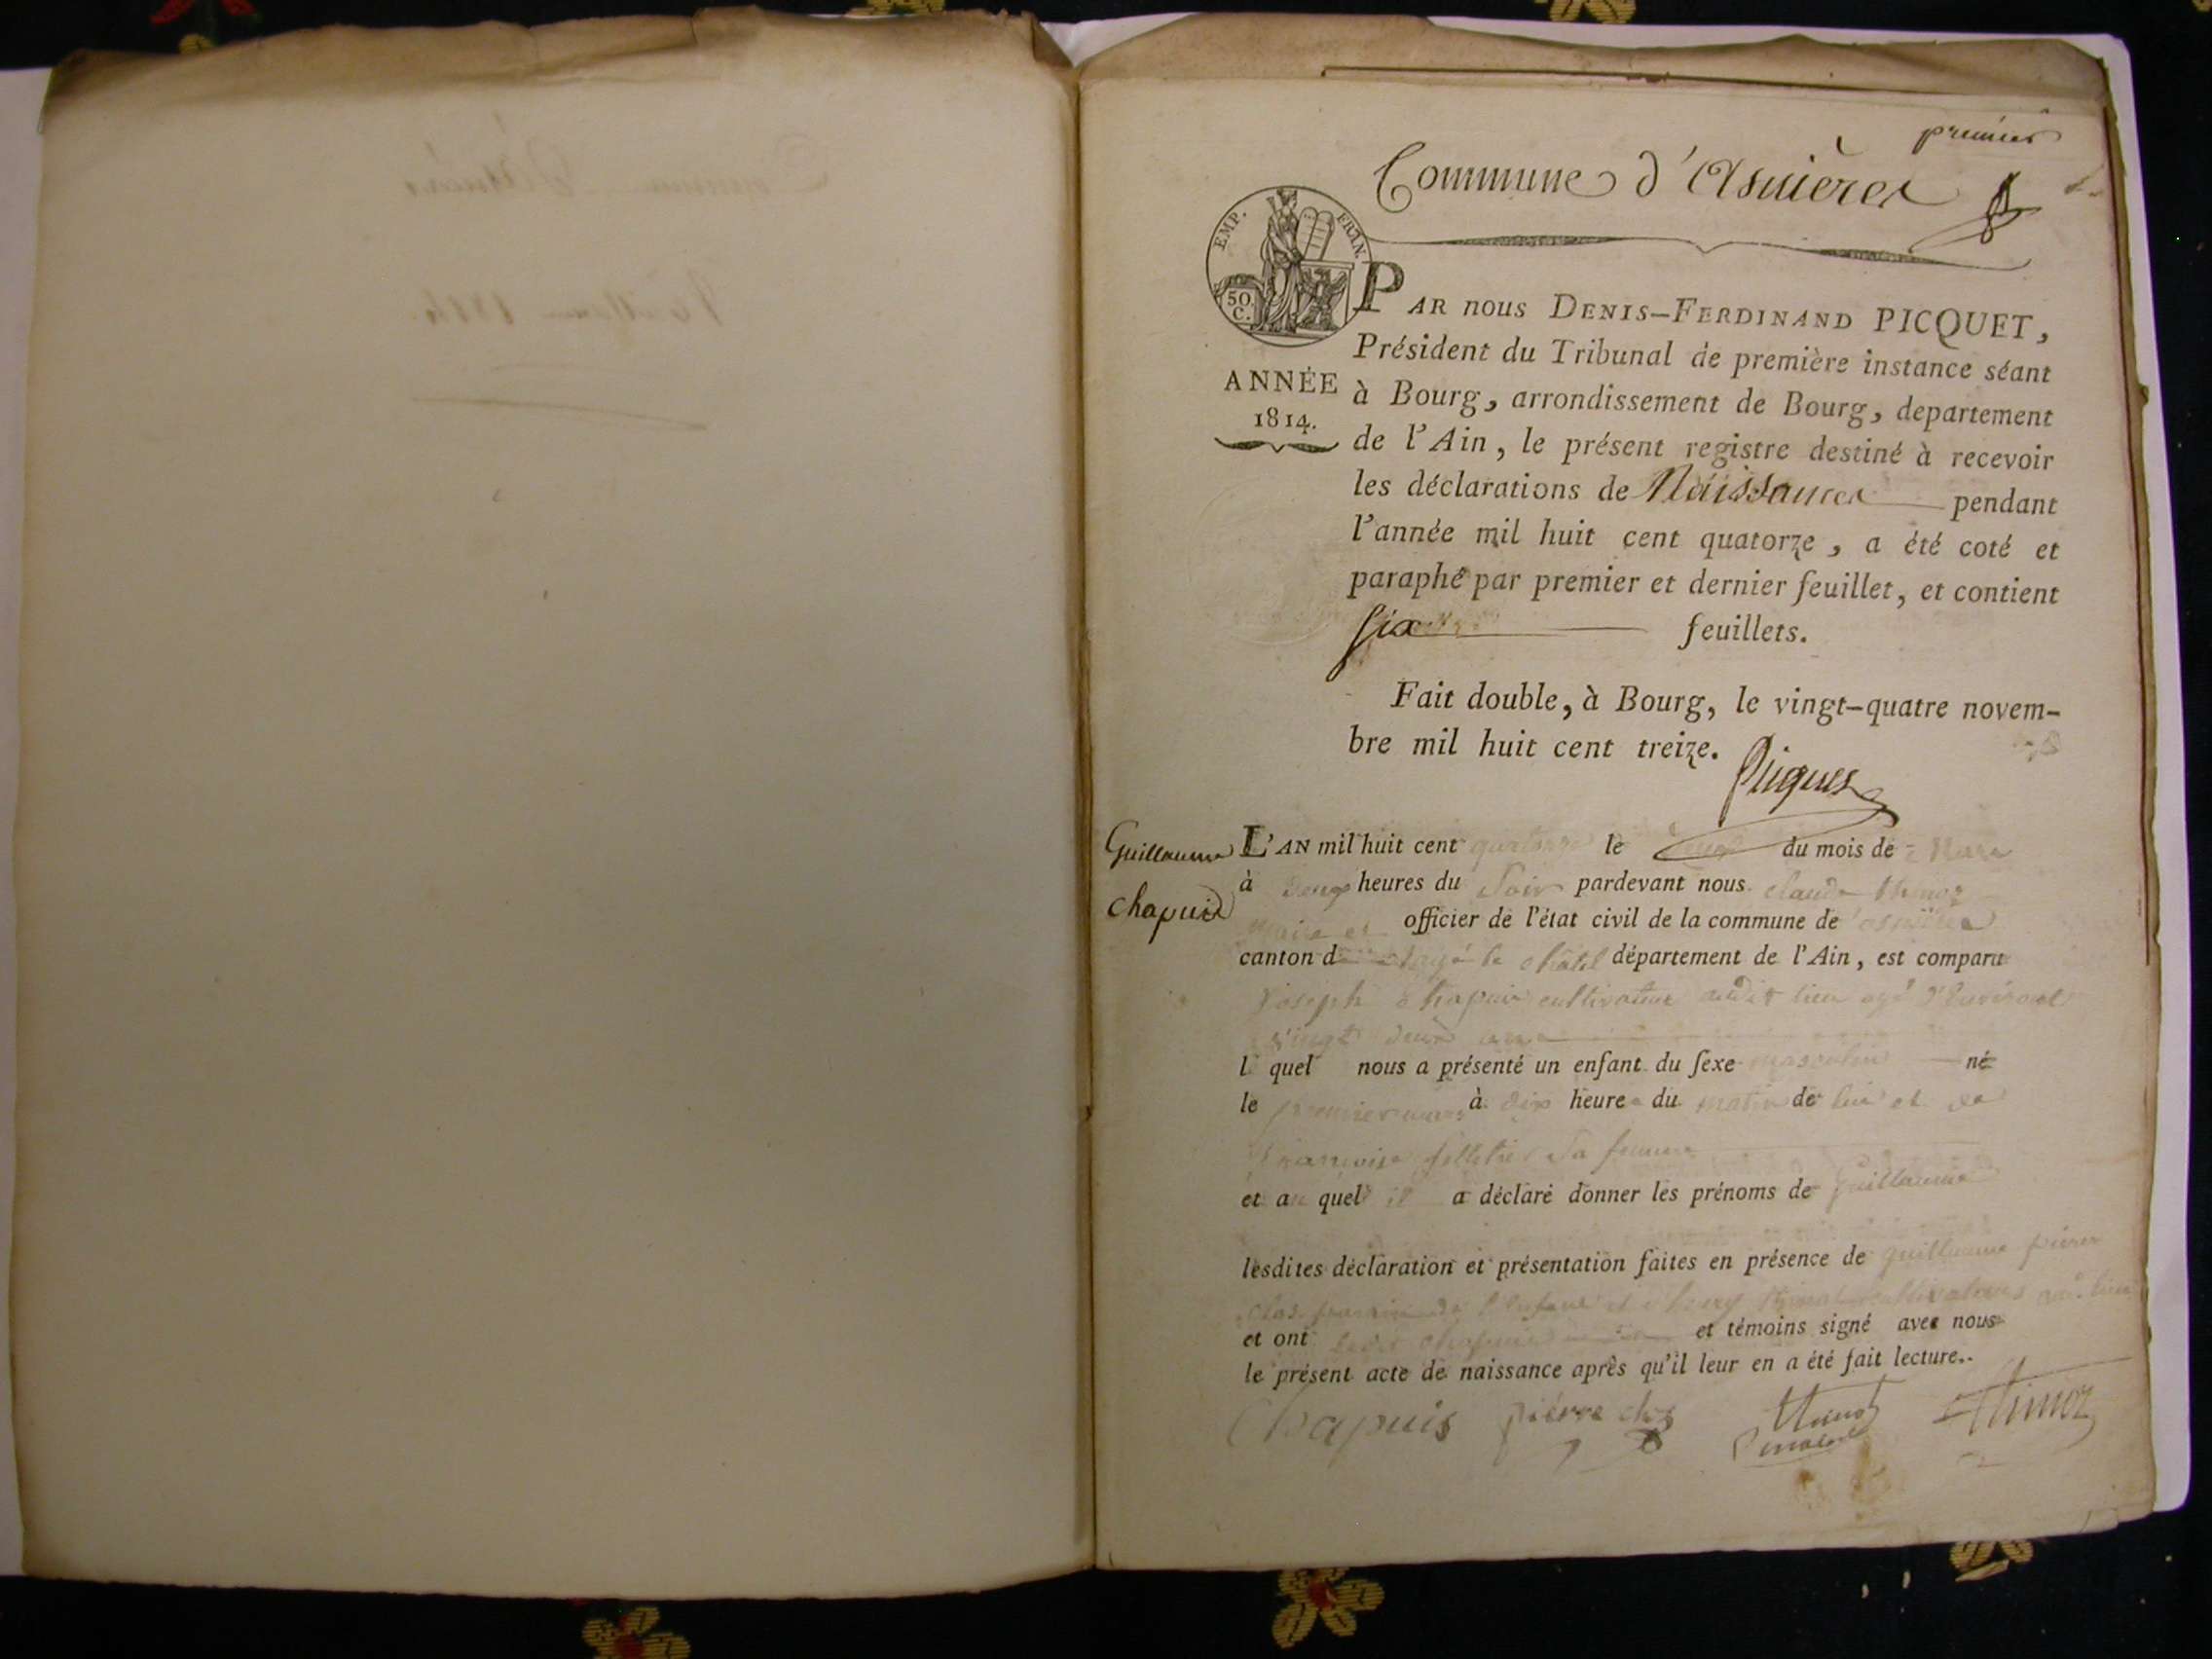 premier
Commune d'Asnières
EMP. FRAN.
50 C.
ANNÉE
1814.
PAR nous DENIS-FERDINAND PICQUET,
Président du Tribunal de première instance séant
à Bourg, arrondissement de Bourg, departement
de l'Ain, le présent registre destiné à recevoir
les déclarations de Naissances pendant
l'année mil huit cent quatorze, a été coté et
paraphé par premier et dernier feuillet, et contient
six feuillets.
Fait double, à Bourg, le vingt-quatre novem-
bre mil huit cent treize.
Guillaume
Chapuis
L'AN mil huit cent quatorze le du mois de Mars
à deux heures du Soir pardevant nous claude thimoz
maire et officier de l'état civil de la commune de asnières
canton d bagé le châtel département de l'Ain, est comparu
joseph Chapuis cultivateur audit lieu agé d'Environ
vingt deux ans
l quel nous a présenté un enfant du sexe masculin né
le premier mars à dix heures du matin de lui et de
françoise sa femme
et au quel il a déclaré donner les prénoms de guillaume
lesdites déclaration et présentation faites en présence de guillaume pierre
et ont ledit chapuis et témoins signé avec nous
le présent acte de naissance après qu'il leur en a été fait lecture..
Chapuis pierre Thimoz